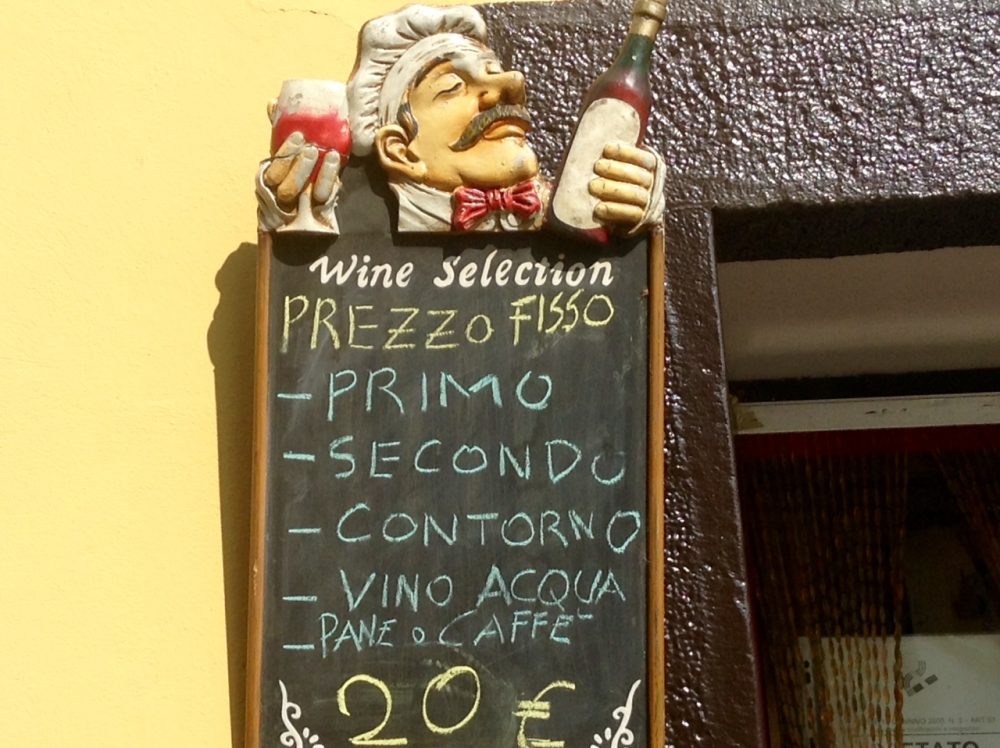 Wine Selection
PREZZO FISSO
- PRIMO
- SECONDO
- CONTORNO
- VINO ACQUA
- PANE O CAFFE'
20 €